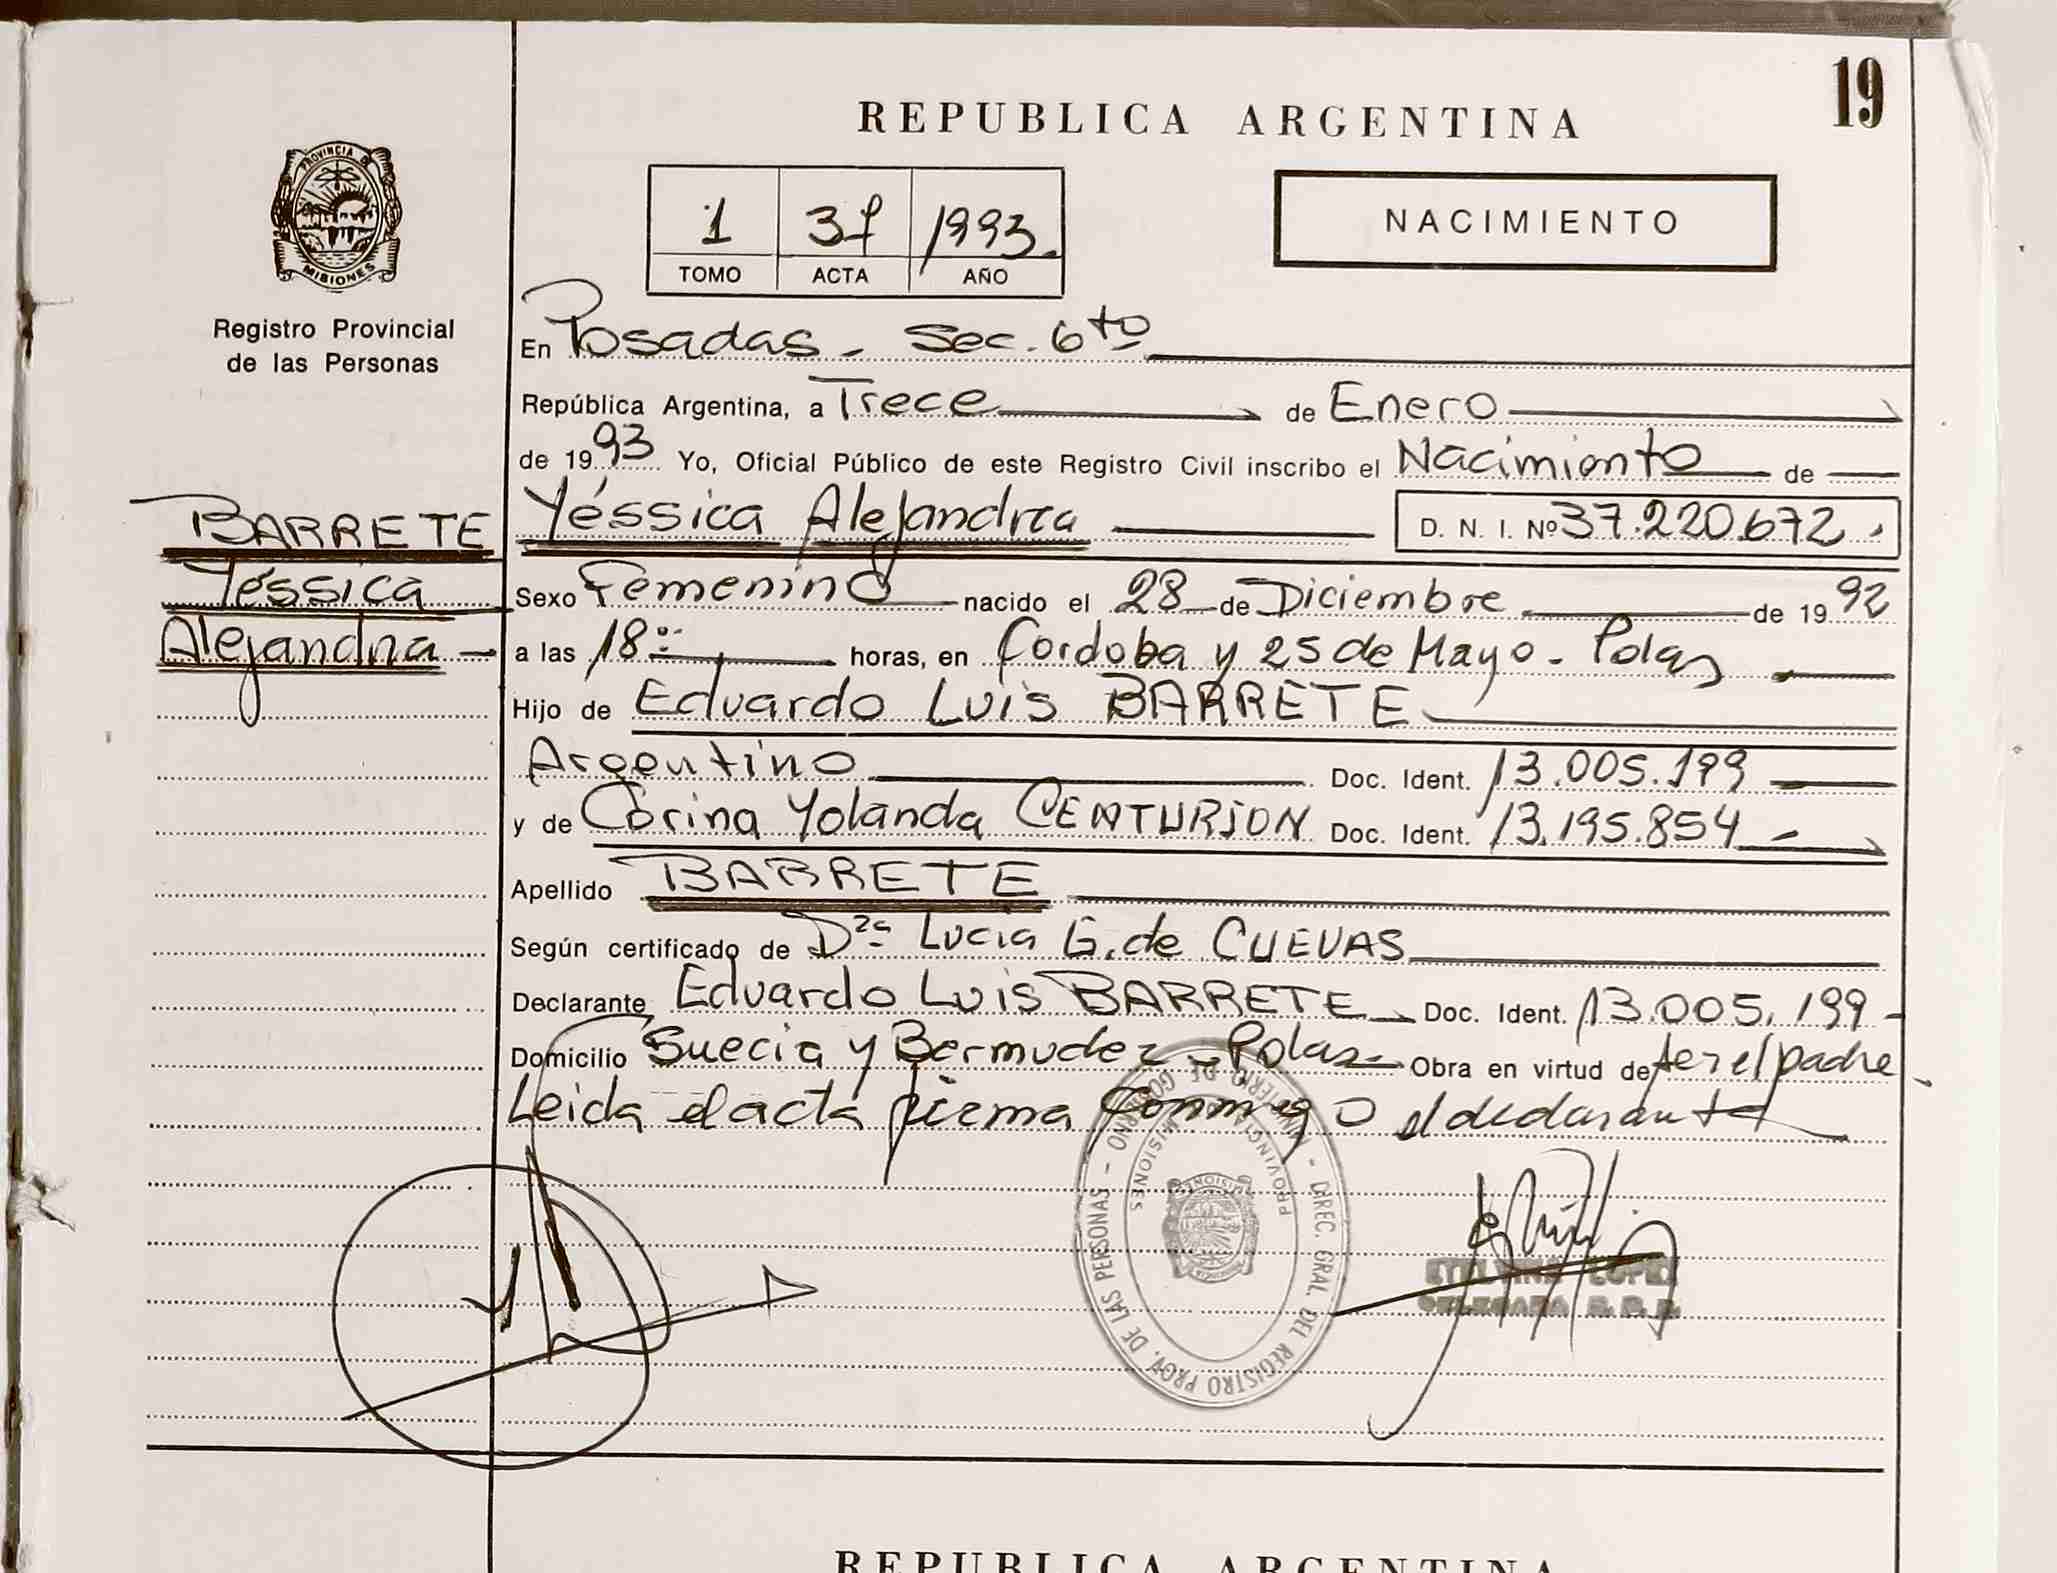 19
REPUBLICA ARGENTINA
PROVINCIA DE
MISIONES
Registro Provincial
de las Personas
1 37 1993.
TOMO ACTA AÑO
NACIMIENTO
En Posadas - Sec. 6to
República Argentina, a Trece de Enero
de 1993 Yo, Oficial Público de este Registro Civil inscribo el Nacimiento de
BARRETE
Yéssica
Alejandra
Yéssica Alejandra D. N. I. Nº 37.220.672.
Sexo Femenino nacido el 28 de Diciembre de 1992
a las 18:00 horas, en Cordoba y 25 de Mayo - Pdas
Hijo de Eduardo Luis BARRETE
Argentino Doc. Ident. 13.005.199
y de Corina Yolanda CENTURION Doc. Ident. 13.195.854
Apellido BARRETE
Según certificado de Dra Lucia G. de CUEVAS
Declarante Eduardo Luis BARRETE Doc. Ident. 13.005.199
Domicilio Suecia y Bermudez - Pdas Obra en virtud de ser el padre
Leida el acta firma conmigo el declarante
MINISTERIO DE GOBIERNO - DIREC. GRAL. DEL REGISTRO PROV. DE LAS PERSONAS -
PROVINCIA MISIONES
ETELVINA LOPEZ
DELEGADA R.P.P.
REPUBLICA ARGENTINA